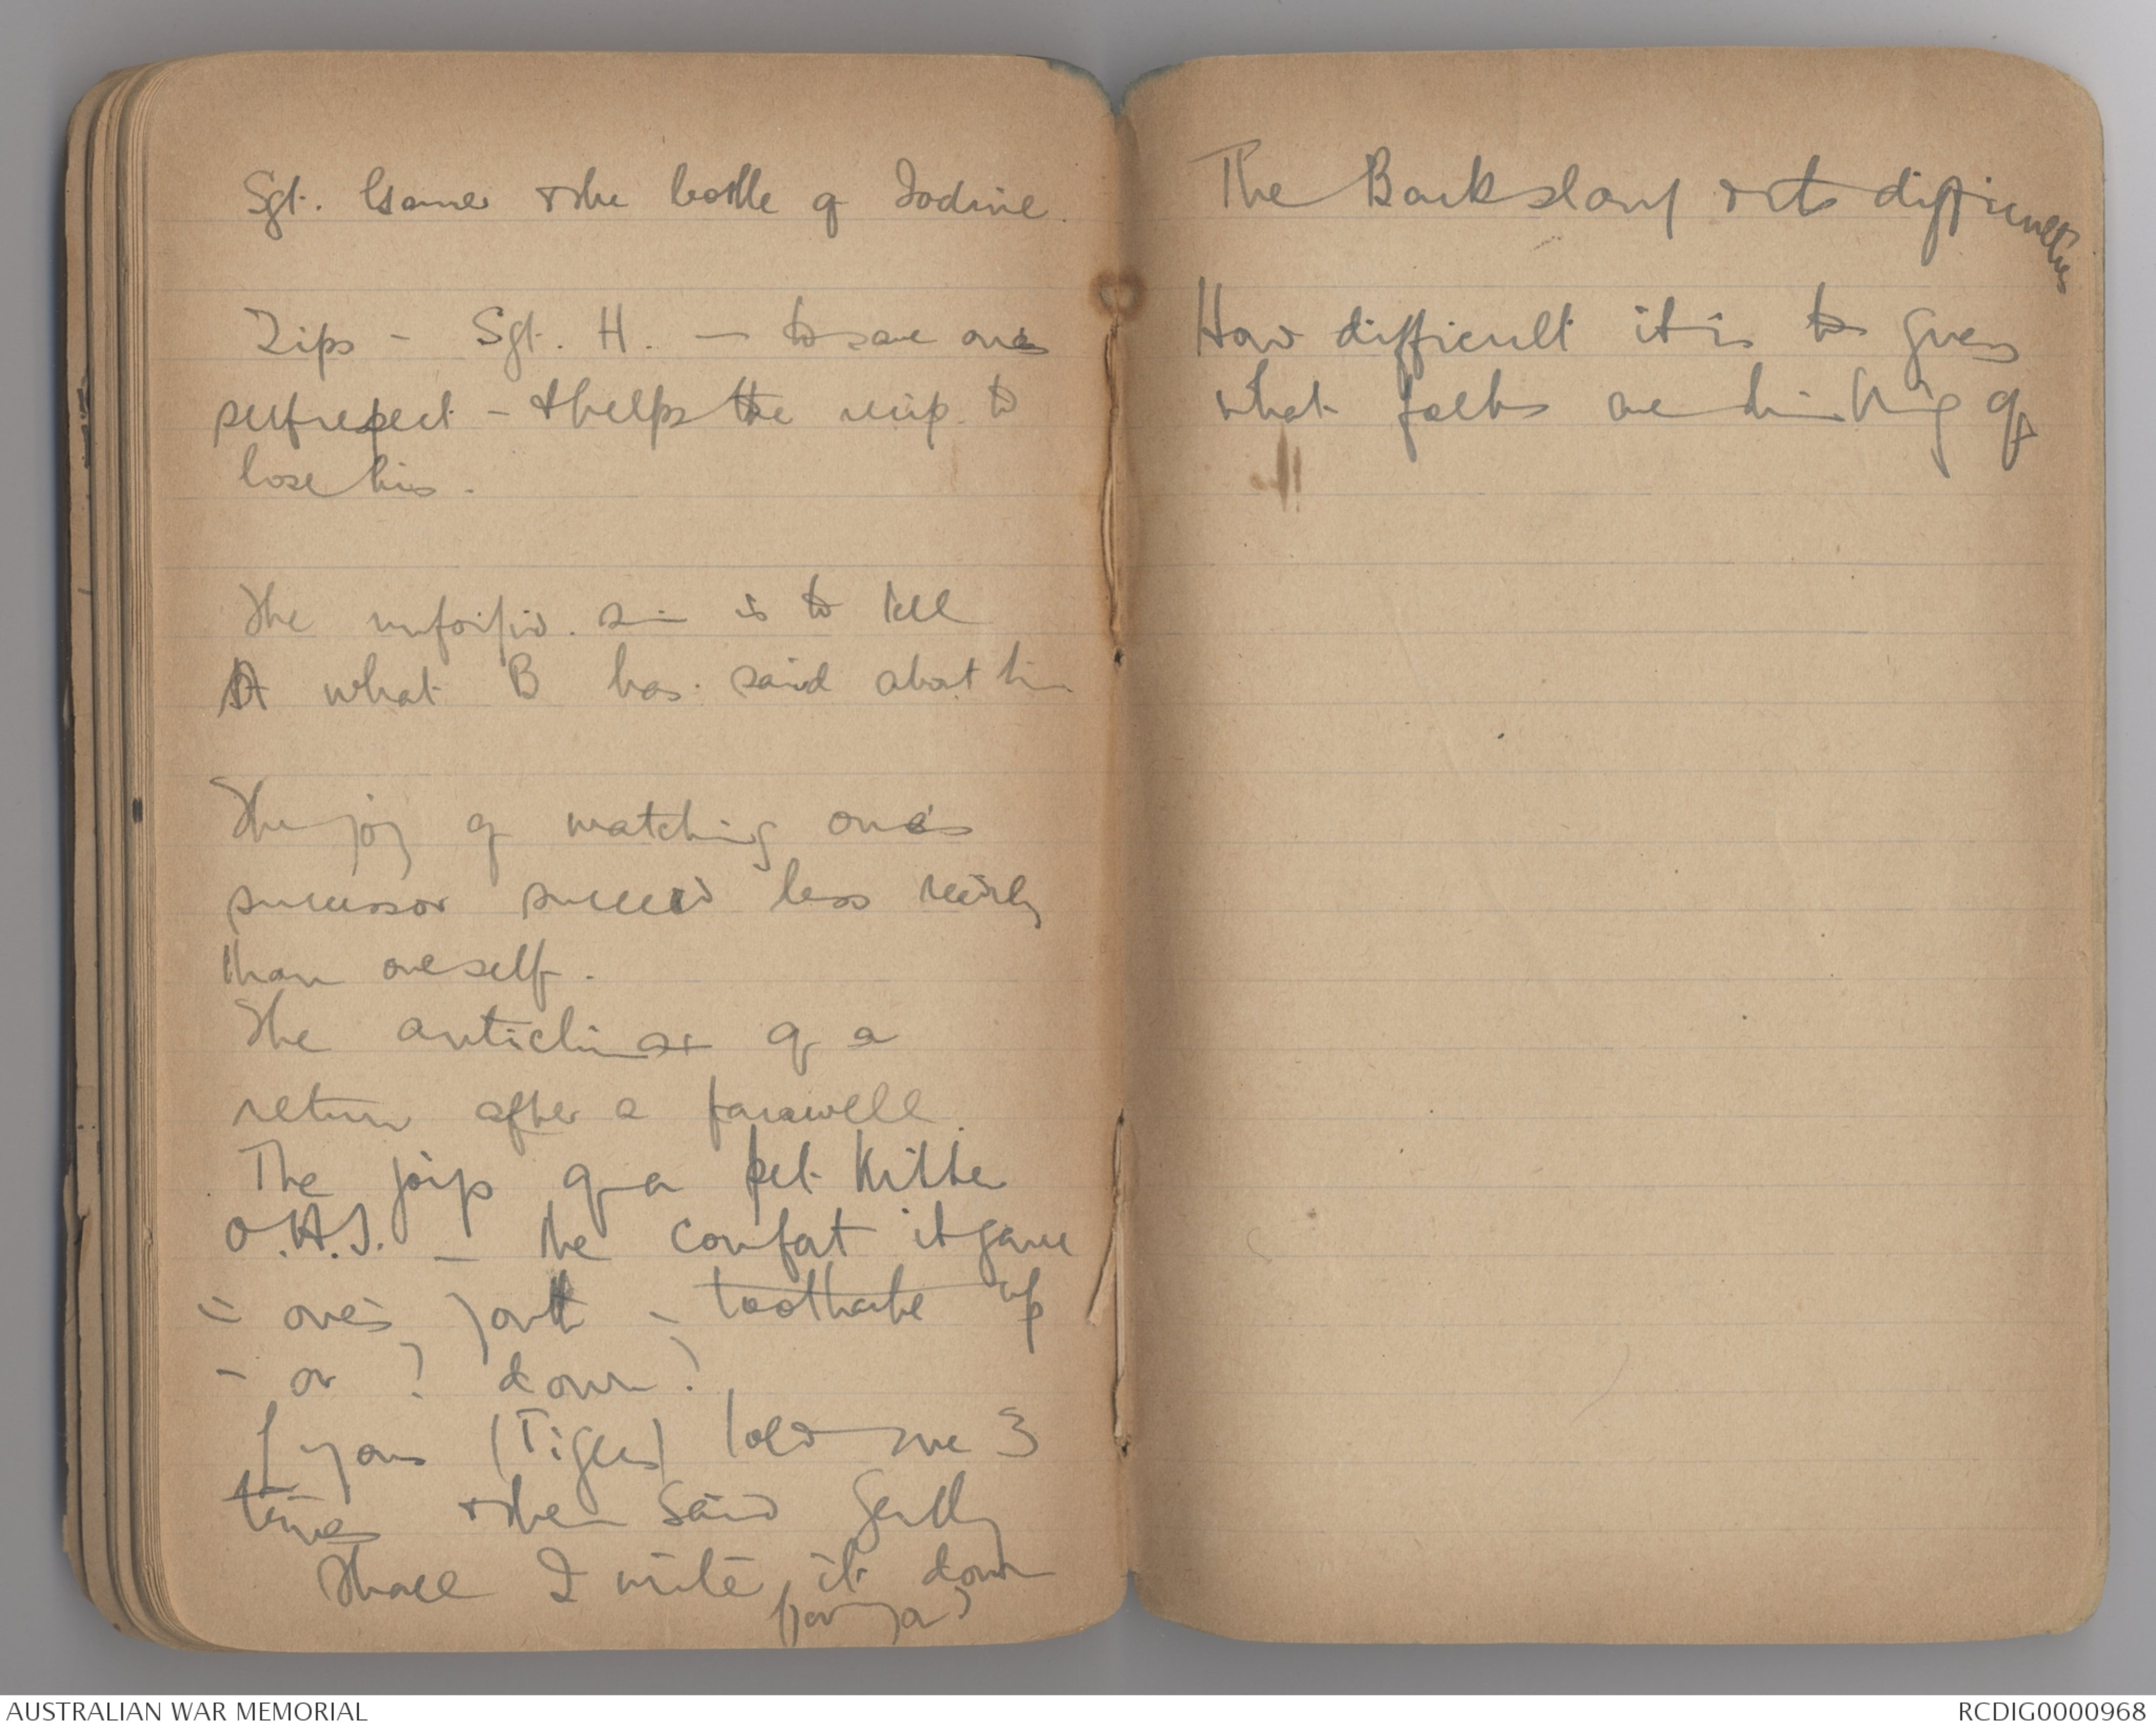 Sgt. & the bottle of Iodine.
Tips - Sgt. H. - to save one's
selfrespect - & helps the recip. to
lose his.
The unforgiv. sin is to tell
A what B has said about him
The joy of watching one's
successor succeed less
than oneself.
The anticlimax of a
return after a farewell.
The joys of a pet Kitten
O.A.S. - the comfort it gave
= one's youth - toothache up
- or ? down?
Lyons (Tigers) told me 3
times & then said gently
Shall I write it down
for you?
The Back & its difficulties
How difficult it is to guess
what folks are thinking of
AUSTRALIAN WAR MEMORIAL
RCDIG0000968